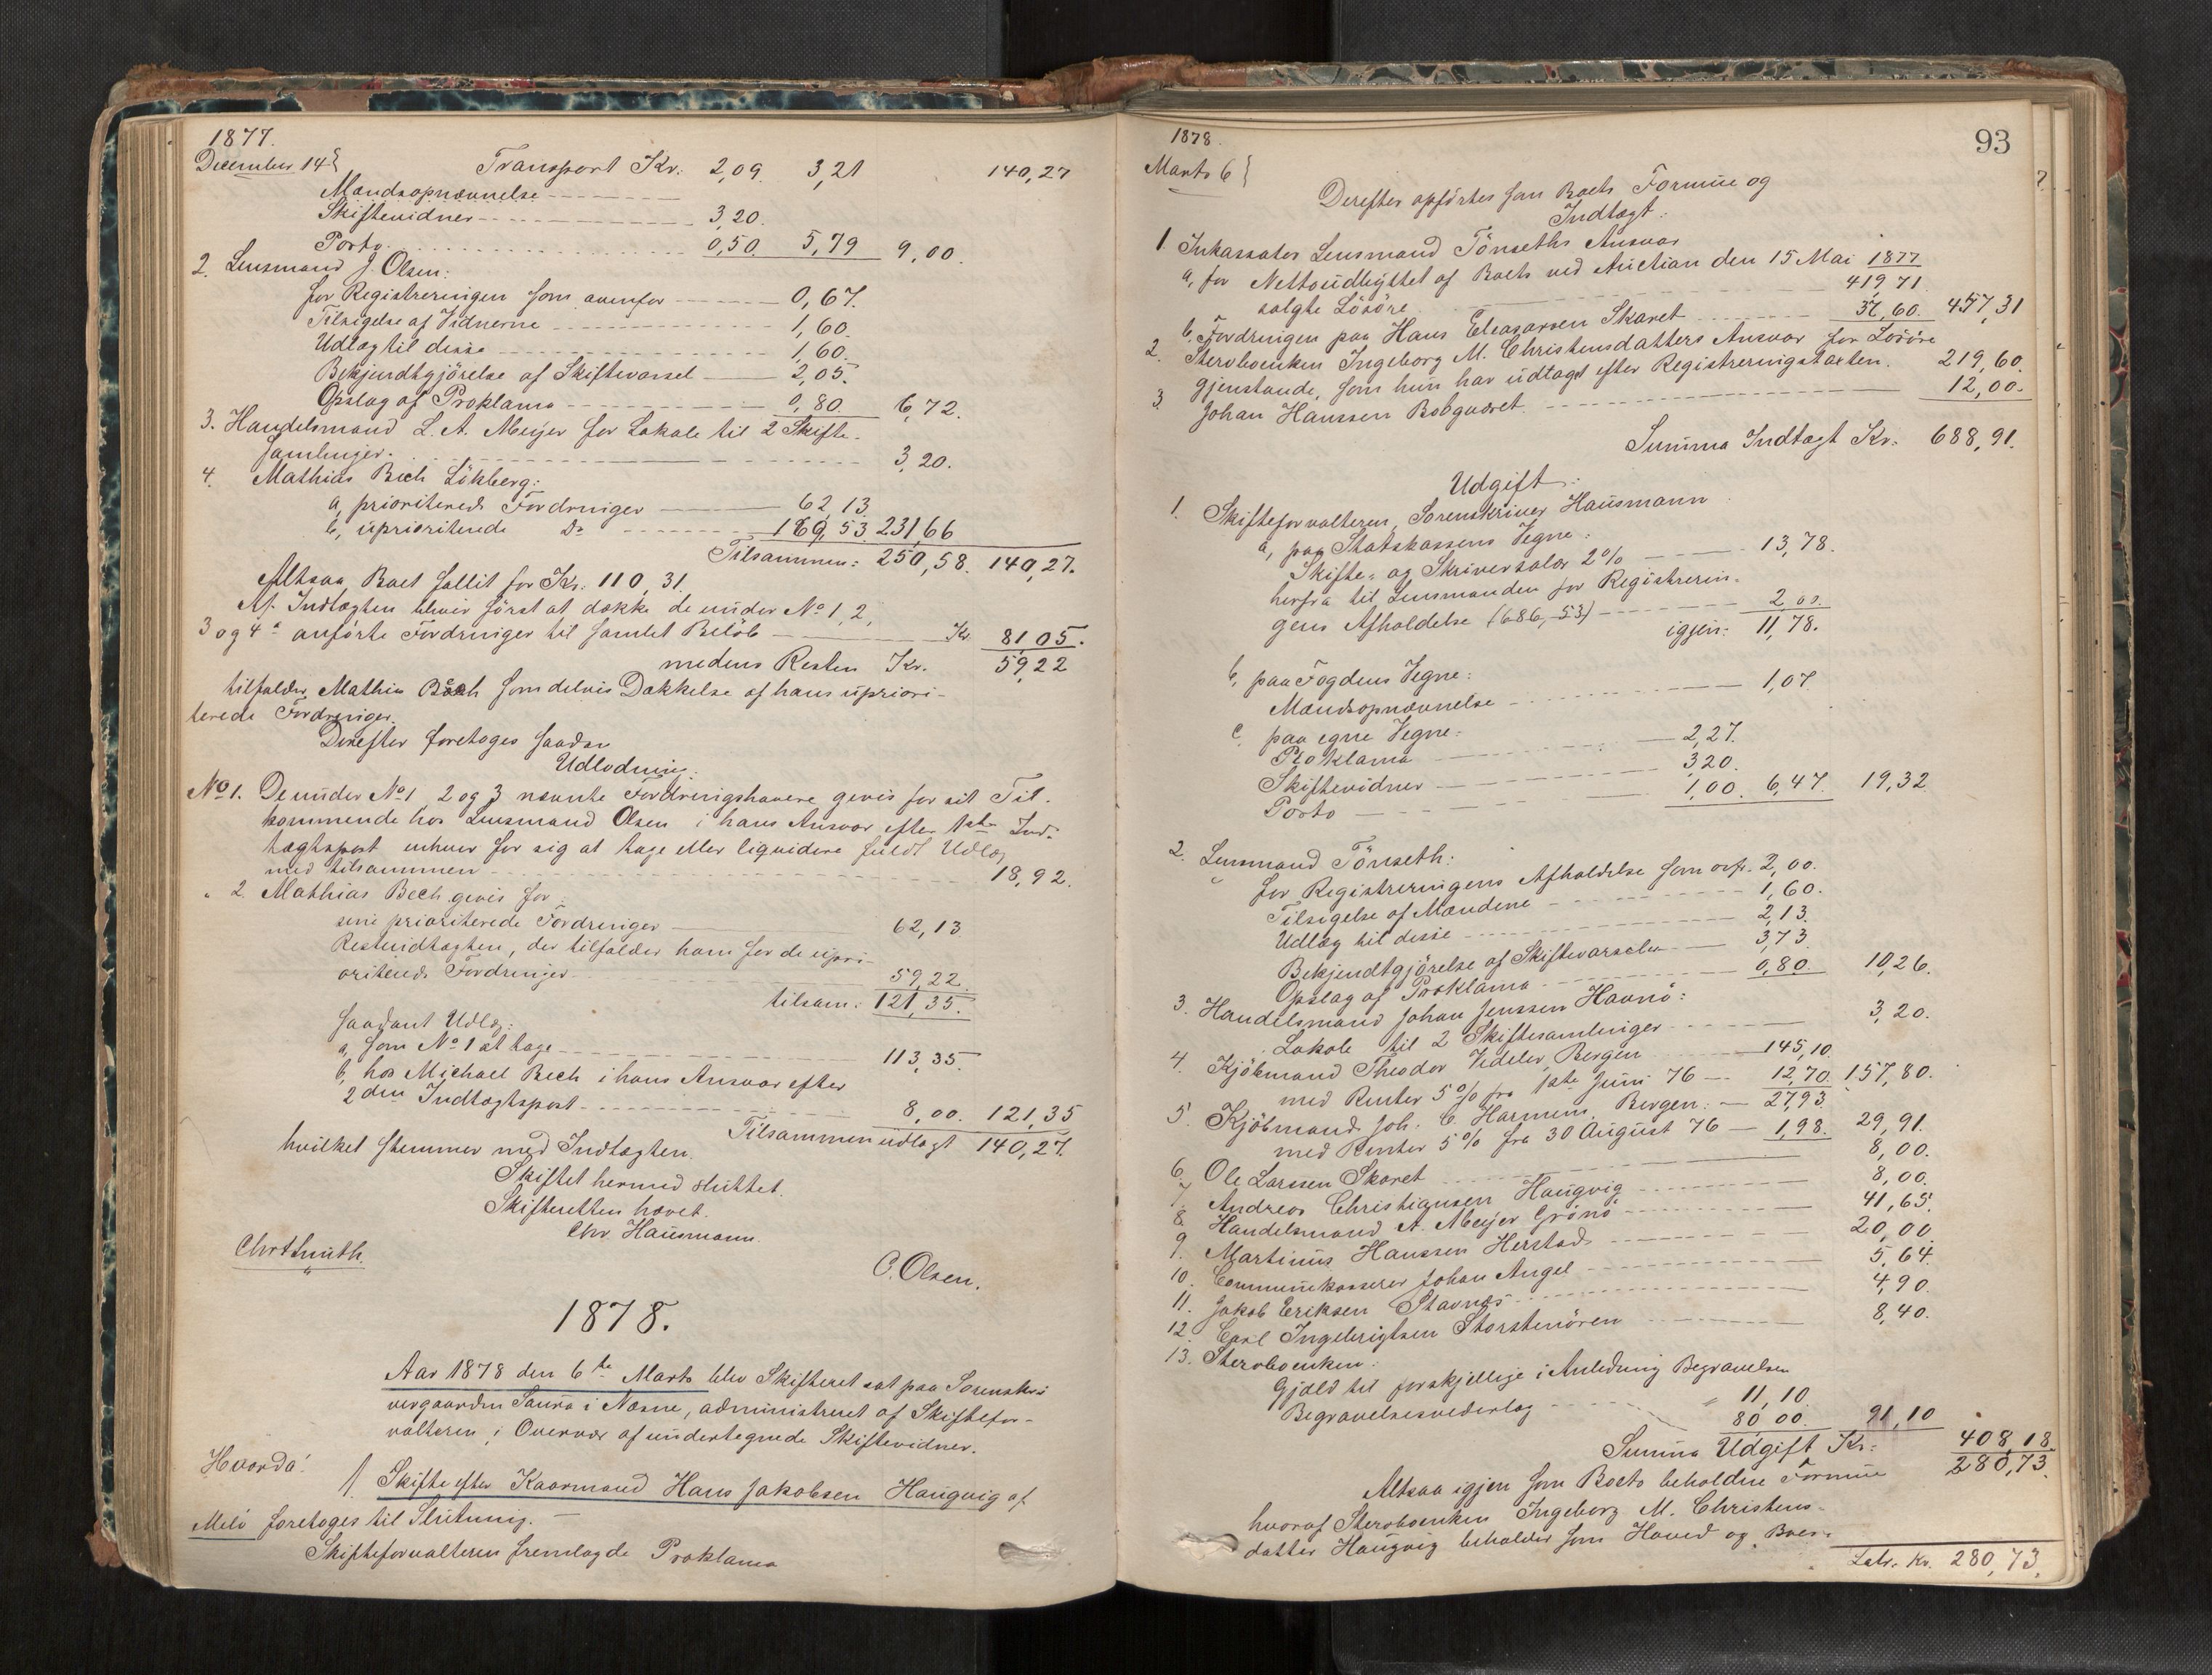 1877.
December 14
Transport Kr. 2,09. 3,21 140,27
Mandsopnævnelse
Skiftevidner 3,20.
Porto 0,50. 5,79 9,00.
2. Lensmand J. Olsen:
for Registreringen som ovenfor 0,67.
Tilsigelse af Vidnerne 1,60.
Udlæg til disse 1,60.
Bekjendtgjörelse af Skiftevarsel 2,05.
Opslag af Proklama 0,80. 6,72.
3. Handelsmand L. A. Meyer for Lokale til 2 Skifte-
samlinger. 3,20.
4. Mathias Bech Lökberg:
a, prioriterede Fordringer 62,13.
b, uprioriterede Do 169,53. 231,66
Tilsammen: 250,58. 140,27.
Altsaa Boet fallit for Kr. 110,31.
Af Indtægten bliver först at dække de under No 1, 2,
3 og 4a anförte Fordringer til samlet Belöb Kr. 81,05.
medens Resten Kr. 59,22
tilfalder Mathias Bech som delvis Dækkelse af hans upriori-
terede Fordringer.
Derefter foretoges saadan
Udlodning:
No 1. De under No 1, 2 og 3 nævnte Fordringshavere gives for sit Til-
kommende hos Lensmand Olsen i hans Ansvar efter 1ste Ind-
tægtspost enhver for sig at tage eller liquidere fuldt Udlæg
med tilsammen 18,92.
" 2. Mathias Bech gives for:
sine prioriterede Fordringer 62,13
Restindtægten, der tilfalder ham for de upri-
oriterede Fordringer 59,22.
tilsam: 121,35.
saadant Udlæg:
a, som No 1 at tage 113,35.
b, hos Michael Bech i hans Ansvar efter
2den Indtægtspost 8,00. 121,35
Tilsammen udlagt 140,27.
hvilket stemmer med Indtægten.
Skiftet hermed sluttet.
Skifteretten hævet.
Chr. Hausmann.
Chr. Smith.
O. Olsen.
1878.
Aar 1878 den 6te Marts blev Skifteret sat paa Sorenskri-
vergaarden Saura i Næsne, administreret af Skiftefor-
valteren, i Overvær af undertegnede Skiftevidner.
Hvorda!
1. Skifte efter Kaarmand Hans Jakobsen Haugvig af
Melö foretoges til Slutning. —
Skifteforvalteren fremlagde Proklama
1878.
93
Marts 6
Derefter opförtes som Boets Formue og
Indtægt:
1. Inkassator Lensmand Tönseths Ansvar
a, for Nettoudbyttet af Boets ved Auction den 15 Mai 1877
solgte Lösöre 419,71.
b, Fordringen paa Hans Eleasarsen Skaret 37,60. 457,31
2. Sterboenken Ingeborg M. Christensdatters Ansvar for Lösöre
gjenstande, som hun har udtaget efter Registreringstaxten. 219,60.
3. Johan Hanssen Bobgværet 12,00.
Summa Indtægt Kr. 688,91.
Udgift:
1. Skifteforvalteren, Sorenskriver Hausmann
a, paa Statskassens Vegne:
Skifte- og Skriversalær 2% 13,78.
herfra til Lensmanden for Registrerin-
gens Afholdelse (686,53) 2,00.
igjen: 11,78.
b, paa Fogdens Vegne:
Mandsopnævnelse 1,07.
c, paa egne Vegne:
Proklama 2,27.
Skiftevidner 3,20.
Porto 1,00. 6,47. 19,32
2. Lensmand Tönseth:
for Registreringens Afholdelse som ovf. 2,00.
Tilsigelse af Mændene 1,60.
Udlæg til disse 2,13.
Bekjendtgjörelse af Skiftevarselen 3,73.
Opslag af Proklama 0,80. 10,26.
3. Handelsmand Johan Jenssen Havnö:
Lokale til 2 Skiftesamlinger 3,20.
4. Kjöbmand Theodor Vedeler, Bergen 145,10.
med Renter 5% fra 1ste Juni 76 12,70. 157,80.
5. Kjöbmand Joh. C. Harmens, Bergen: 27,93.
med Renter 5% fra 30 August 76 1,98. 29,91.
6. Ole Larssen Skaret 8,00.
7. Andreas Christiansen Haugvig 8,00.
8. Handelsmand A. Meyer Grönö 41,65.
9. Martinus Hanssen Herstad 20,00.
10. Communekasserer Johan Angel 5,64.
11. Jakob Eriksen Stavnes 4,90.
12. Carl Ingebrigtsen Storstenören 8,40.
13. Sterboenken:
Gjæld til forskjellige i Anledning Begravelsen 11,10.
Begravelsesvederlag 80,00. 91,10
Summa Udgift Kr: 408,18.
Altsaa igjen som Boets beholdne Formue 280,73.
hvoraf Sterboenken Ingeborg M. Christens-
datter Haugvig beholder som Hoved og Boes-
Latr. Kr. 280,73.